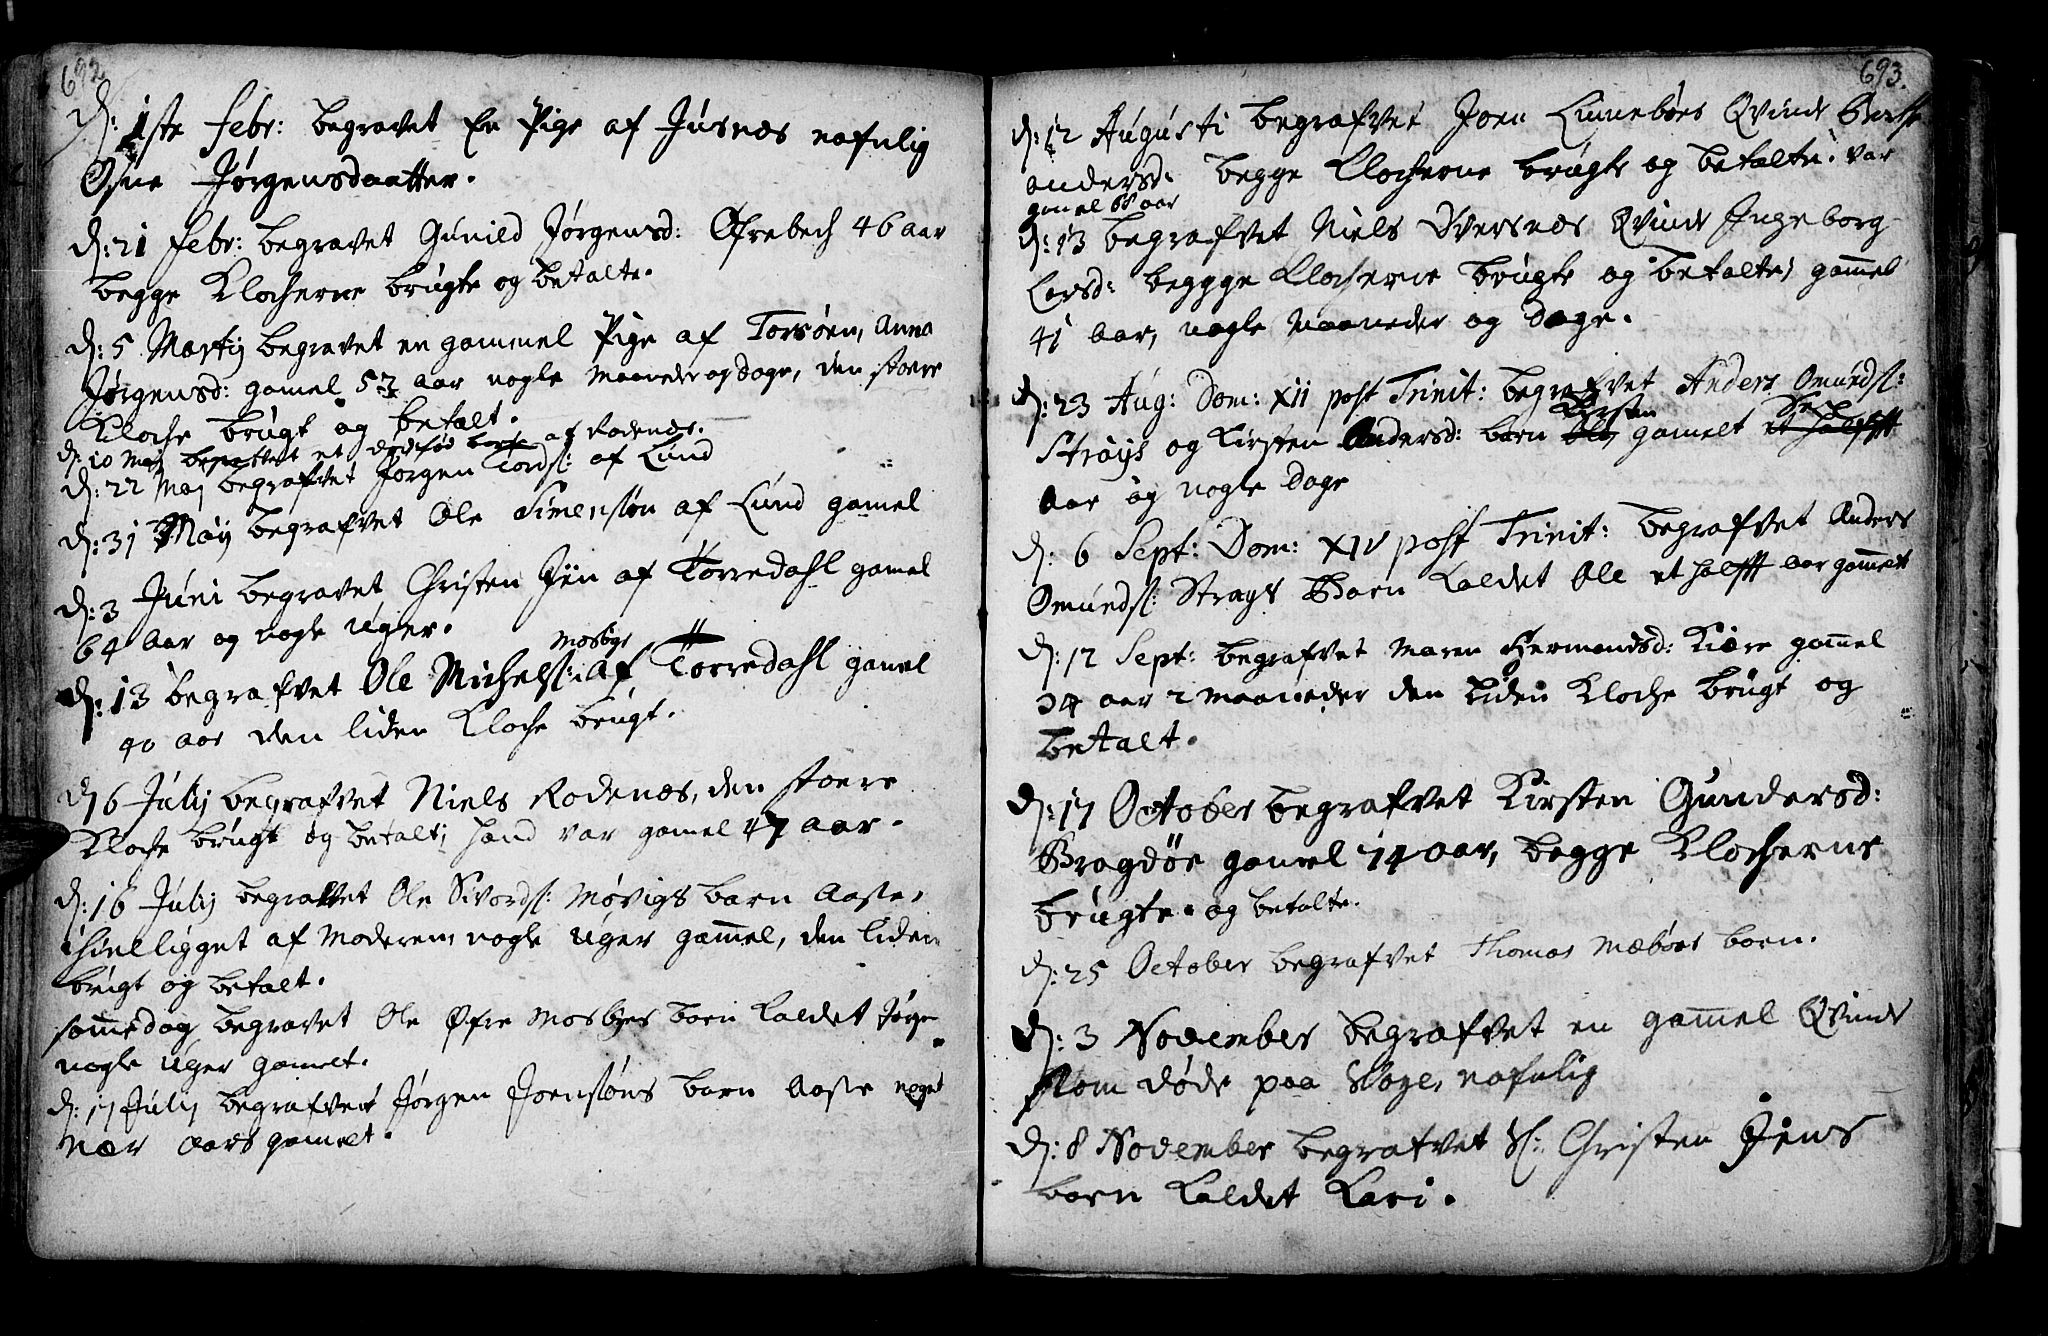 692
d: 1ste Febr: begravet En Pige af Jusnæs nafnlig
Osne Jørgensdaatter.
d: 21 Febr: begravet Gunild Jørgensd: Øfrebech 46 aar
begge Klocherne brugte og betalte.
d: 5 Martij begravet en gammel Pige af Torsøen, Anna
Jørgensd: gamel 53 aar nogle Maaneder og Dage, den stoere
Kloche brugt og betalt.
d: 10 Maj begravet et dødfød barn af Rodenæs.
d: 22 Maj begrafvet Jørgen Tords: af Lund
d: 31 Maij begrafvet Ole Simensøn af Lund gamel
d: 3 Juni begravet Christen Jin af Torredahl gamel
64 aar og nogle uger.
Mosbye
d: 13 begrafvet Ole Michels: af Torredahl gamel
40 aar den liden Kloche brugt.
d: 6 Julij begrafvet Niels Rodenæs, den stoere
Kloche brugt og betalt; hand var gamel 47 aar.
d: 16 Julij begravet Ole Sivords: Møvigs barn Aaste,
ihielligget af Moderen, nogle uger gammel, den liden
brugt og betalt.
samme dag begravet Ole Øfre Mosbyes barn kaldet Jørge
nogle uger gamelt.
d: 17 Julij begrafvet Jørgen Joensøns barn Aaste noget
nær aars gamelt.
693.
d: 12 Augusti begrafvet Joen Linnebøes Qvinde Berthe
Andersd: begge Klocherne brugte og betalte. var
gamel 68 aar
d: 13 begrafvet Niels Dversnæs Qvinde Ingeborg
Larsd: beggge Klocherne brugte og betalte; gammel
41 aar, nogle Maaneder og Dage.
d: 23 Aug: Dom: XII post Trinit: begrafvet Anders Omunds:
Kirsten
Strays og Kirsten Andersd: barn Ole gamelt et halfft
aar og nogle Dage
d: 6 Sept: Dom: XIV post Trinit: begrafvet Anders
Omunds: Strays Barn Kaldet Ole et halfft aar gammelt
d: 12 Sept: begrafvet Maren Hermandsd: Kiære gammel
34 aar 2 Maaneder den liden Kloche brugt og
betalt.
d: 17 October begrafvet Kirsten Gundersd:
Bragdøe gamel 74 aar, begge Klocherne
brugte. og betalte.
d: 25 October begrafvet Thomas Mæbøes barn.
d: 3 November begrafvet en gammel Qvinde
som døde paa Voge, nafnlig
d: 8 November begrafvet Sl: Christen Jins
barn kaldet Kari.